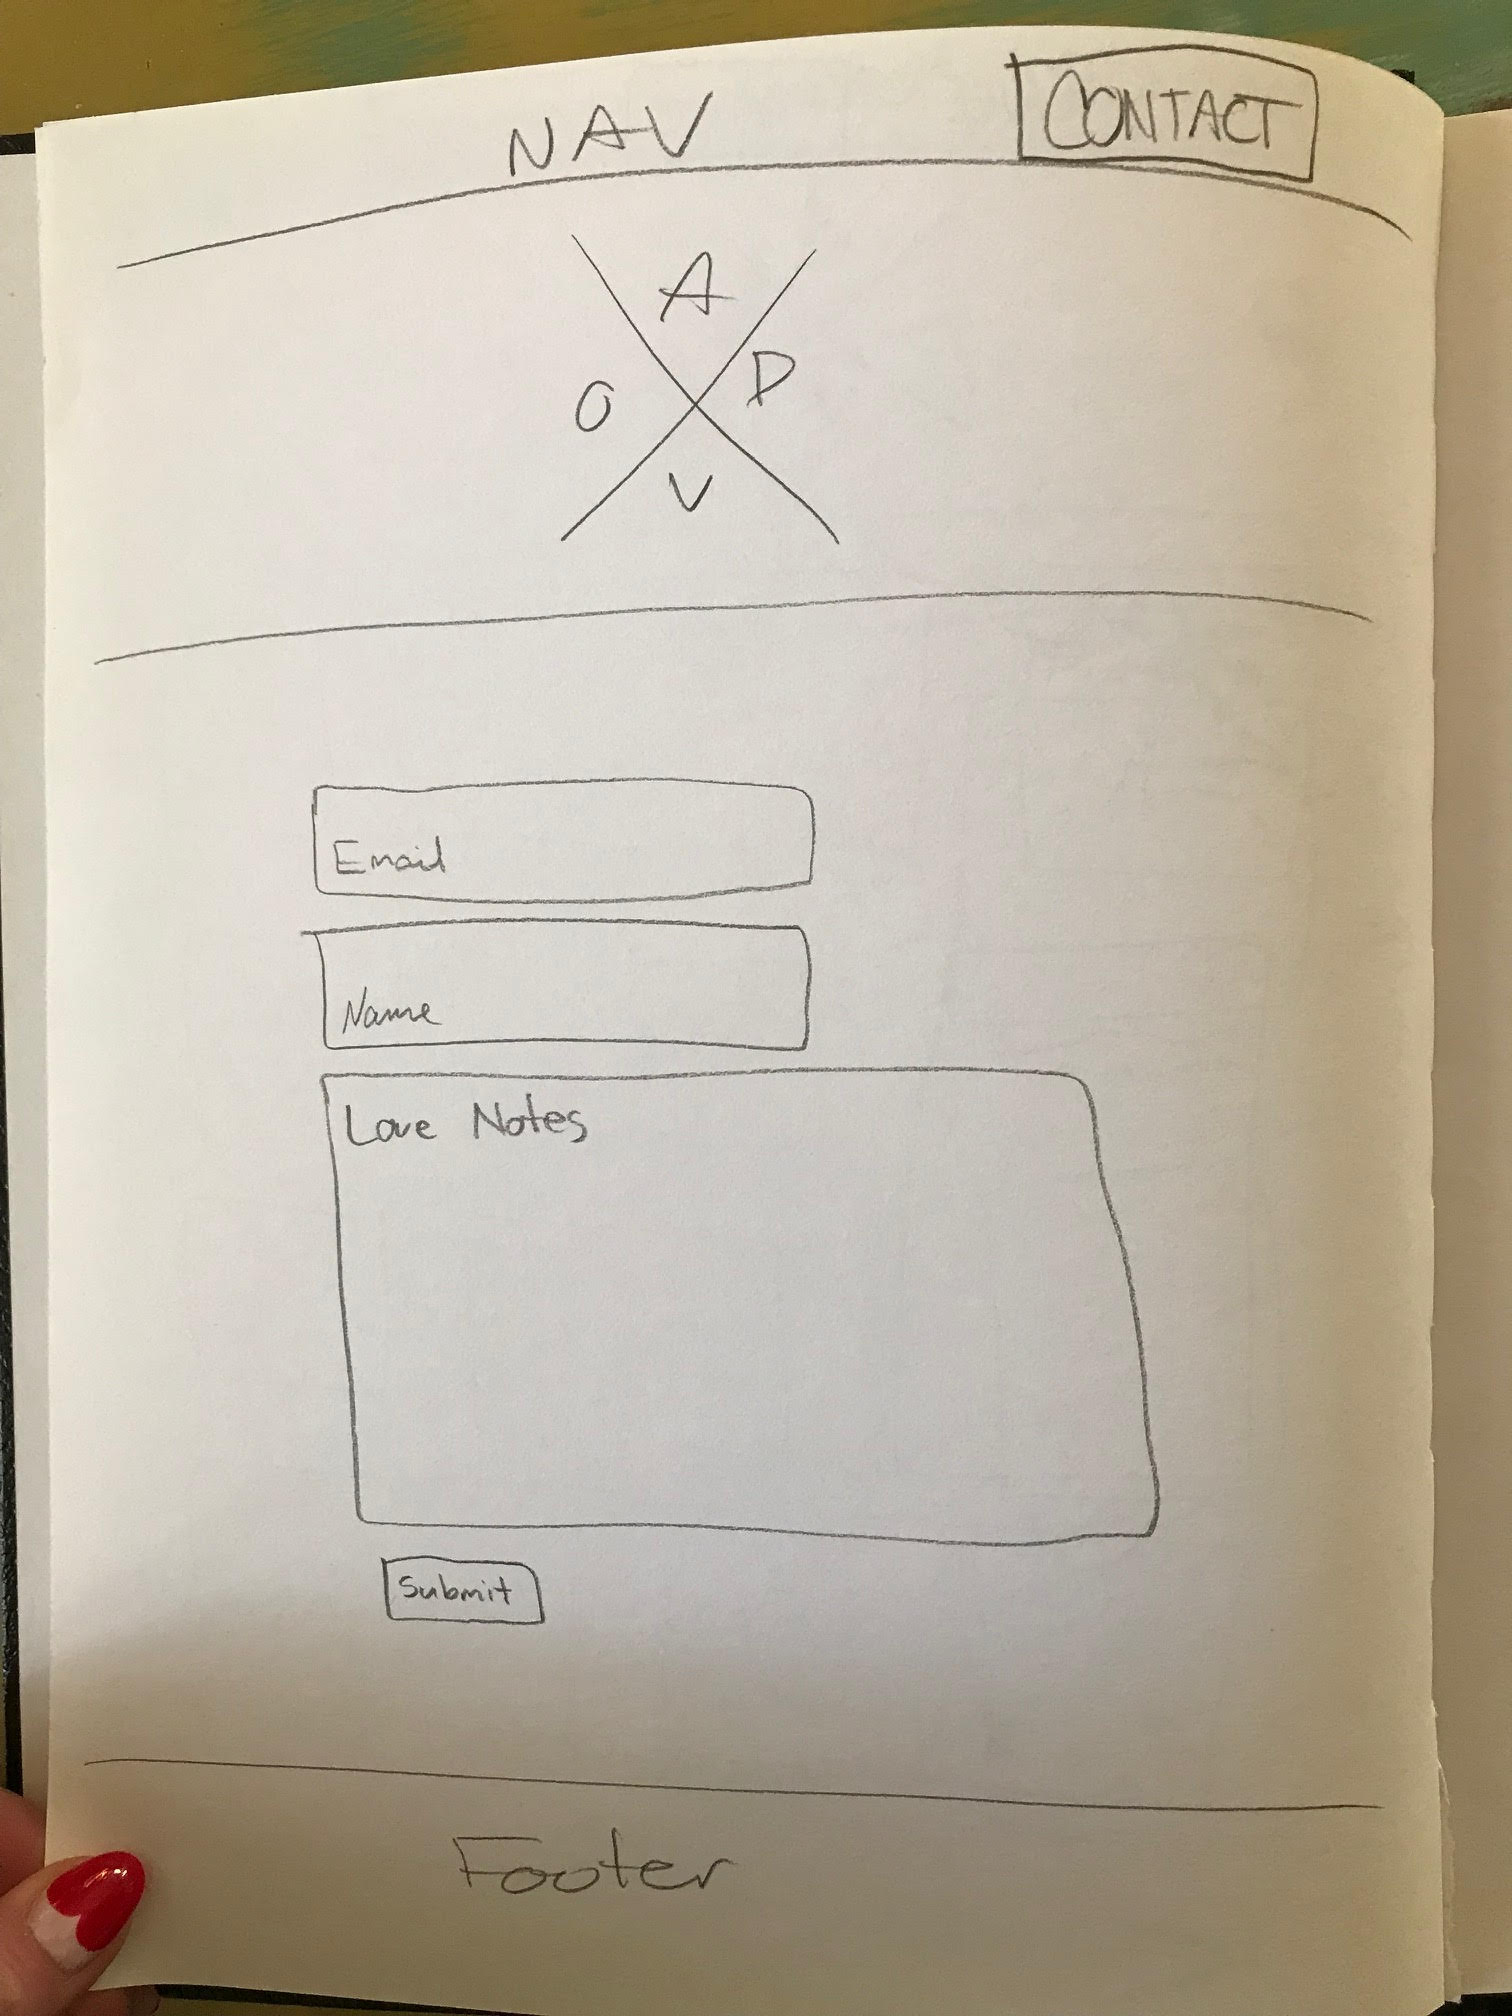 NAV
CONTACT
A
O
D
V
Email
Name
Love Notes
Submit
Footer